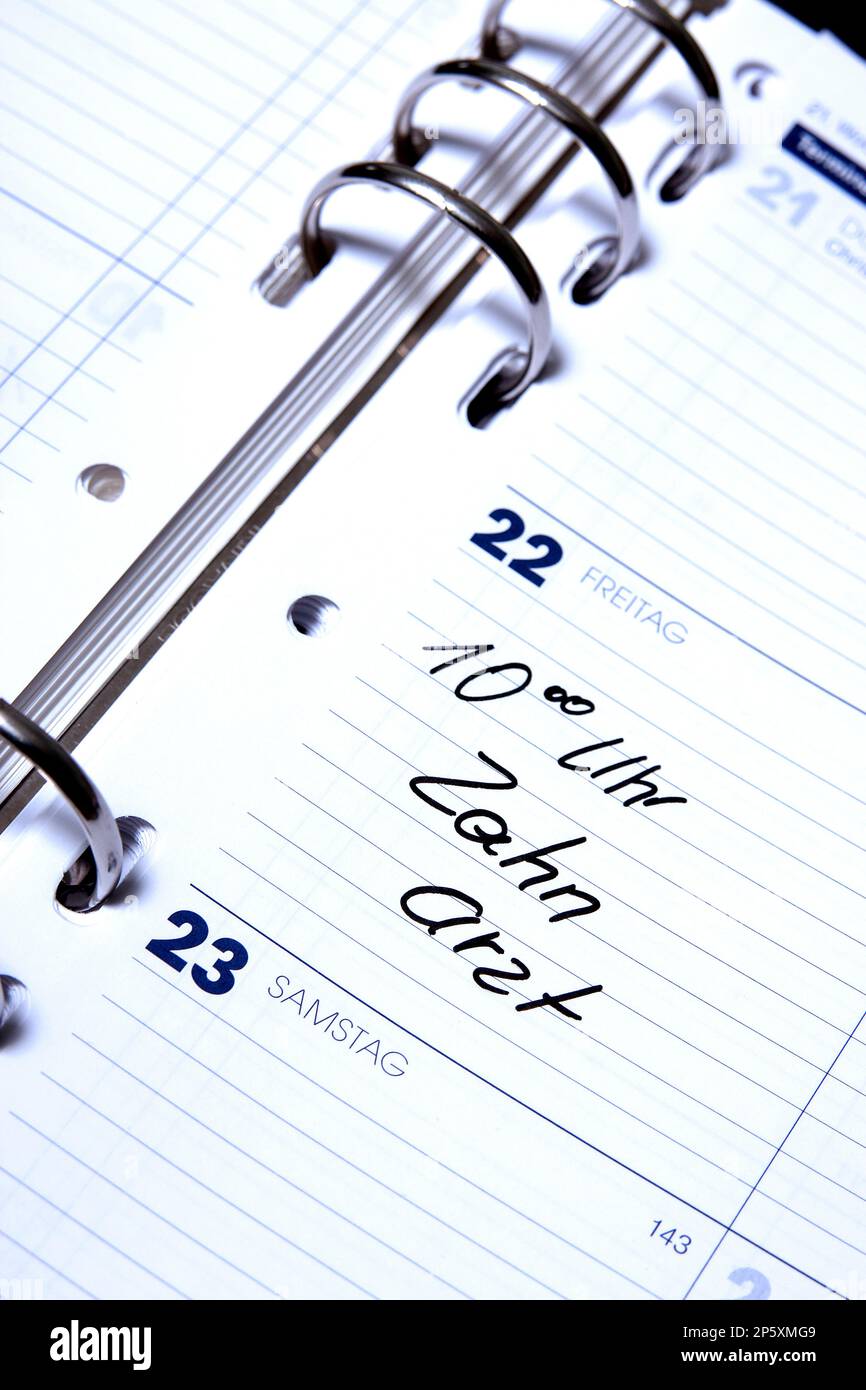 21. W
Termine
21
22 FREITAG
10 00 Uhr
Zahn
arzt
23 SAMSTAG
143
2
alamy
Image ID: 2P5XMG9
www.alamy.com